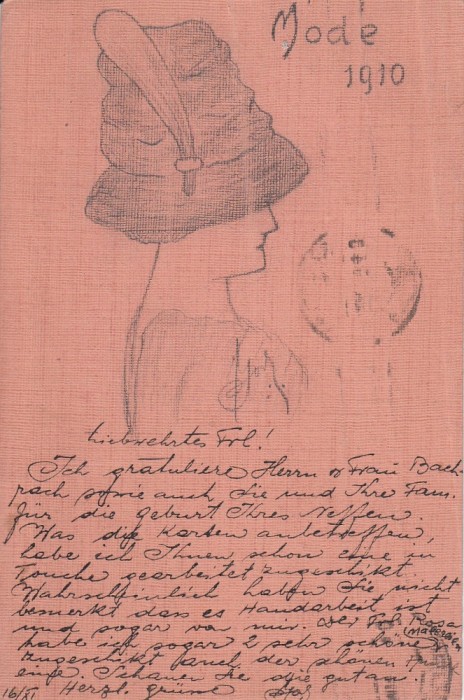 Mode
1910
Liebwehrtes Frl!
Ich gratuliere Herrn & Frau Bach-
rach sowie auch Sie und Ihre Fam.
für die geburt Ihres Neffen.
Was die Karten anbetreffen,
habe ich Ihnen schon eine in
Touche gearbeitet zugeschikt.
Wahrscheinlich haben Sie nicht
bemerkt dass es Handarbeit ist
und sogar von mir. Der Frl. Rosa
habe ich sogar 2 sehr schöne
zugeschikt auch der schönen
eine. Schauen Sie sie gut an.
16/XI Herzl. grüsse